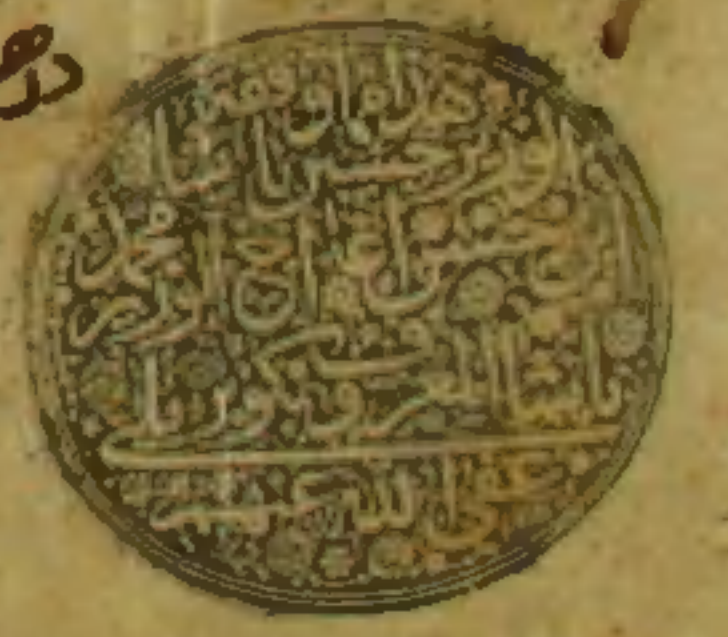 هذا ما اوقفه
الوزير حسين باشا
ابن حسن اغا اخ الوزير محمد
باشا المعروف بكوپريلى
عفا الله عنهم